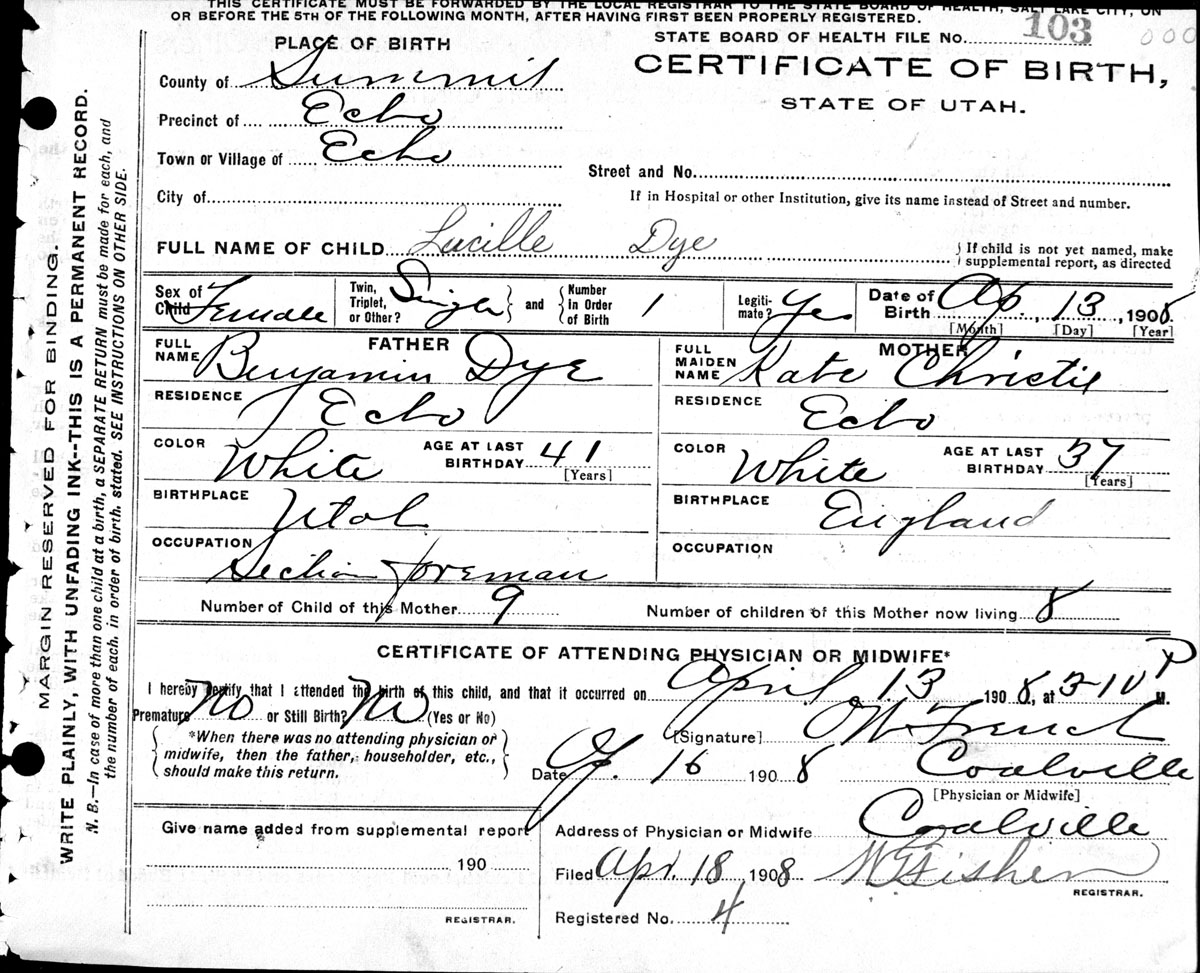 THIS CERTIFICATE MUST BE FORWARDED BY THE LOCAL REGISTRAR TO THE STATE BOARD OF HEALTH, SALT LAKE CITY, ON
OR BEFORE THE 5TH OF THE FOLLOWING MONTH, AFTER HAVING FIRST BEEN PROPERLY REGISTERED.
STATE BOARD OF HEALTH FILE NO. 103
000
CERTIFICATE OF BIRTH,
STATE OF UTAH.
PLACE OF BIRTH
County of Summit
Precinct of Echo
Town or Village of Echo
City of
Street and No.
If in Hospital or other Institution, give its name instead of Street and number.
FULL NAME OF CHILD Lucille Dye
If child is not yet named, make
supplemental report, as directed
Sex of Child Female
Twin, Triplet, or Other? Single
and
Number in Order of Birth 1
Legitimate? Yes
Date of Birth Ap. 13, 1908
[Month] [Day] [Year]
FATHER
FULL NAME Benjamin Dye
RESIDENCE Echo
COLOR White
AGE AT LAST BIRTHDAY 41
[Years]
BIRTHPLACE Utah
OCCUPATION
Section foreman
MOTHER
FULL MAIDEN NAME Kate Christie
RESIDENCE Echo
COLOR White
AGE AT LAST BIRTHDAY 37
[Years]
BIRTHPLACE England
OCCUPATION
Number of Child of this Mother 9
Number of children of this Mother now living 8
CERTIFICATE OF ATTENDING PHYSICIAN OR MIDWIFE*
I hereby certify that I attended the birth of this child, and that it occurred on April 13 1908, at 3-10 P M.
Premature No or Still Birth? No (Yes or No)
*When there was no attending physician or
midwife, then the father, householder, etc.,
should make this return.
[Signature] French
Date Ap. 16 1908 Coalville
[Physician or Midwife]
Give name added from supplemental report
190
REGISTRAR.
Address of Physician or Midwife Coalville
Filed Apr. 18 1908 Fisher
REGISTRAR.
Registered No. 4
MARGIN RESERVED FOR BINDING.
WRITE PLAINLY, WITH UNFADING INK--THIS IS A PERMANENT RECORD.
N. B.—In case of more than one child at a birth, a SEPARATE RETURN must be made for each, and
the number of each. in order of birth. stated. SEE INSTRUCTIONS ON OTHER SIDE.